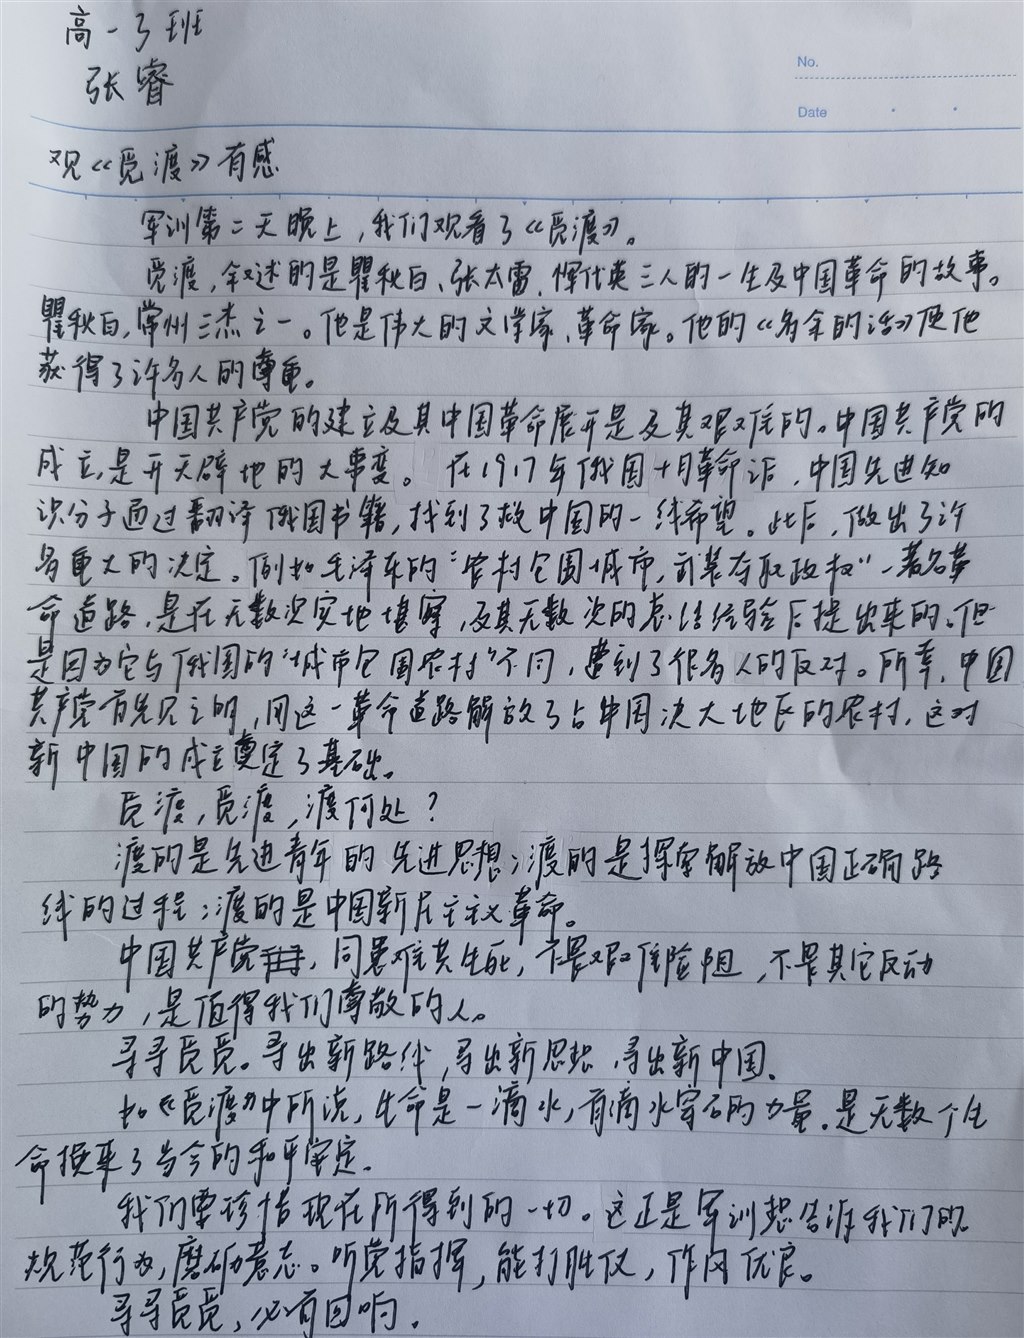 高一3班
张睿
No.
Date
观《觅渡》有感
军训第二天晚上，我们观看了《觅渡》。
觅渡，叙述的是瞿秋白、张太雷、恽代英三人的一生及中国革命的故事。
瞿秋白，常州三杰之一。他是伟大的文学家、革命家。他的《多余的话》使他
获得了许多人的尊重。
中国共产党的建立及其中国革命展开是及其艰难的。中国共产党的
成立，是开天辟地的大事变。在1917年俄国十月革命后，中国先进知
识分子通过翻译俄国书籍，找到了救中国的一线希望。此后，做出了许
多重大的决定。例如毛泽东的“农村包围城市，武装夺取政权”一著名革
命道路，是在无数次实地堪察，及其无数次的总结经验后提出来的。但
是因为它与俄国的“城市包围农村”不同，遭到了很多人的反对。所幸，中国
共产党有先见之明，用这一革命道路解放了占中国决大地区的农村，这对
新中国的成立奠定了基础。
觅渡，觅渡，渡何处？
渡的是先进青年的先进思想；渡的是探索解放中国正确路
线的过程；渡的是中国新民主主义革命。
中国共产党，同患难共生死，不畏艰难险阻，不畏其它反动
的势力，是值得我们尊敬的人。
寻寻觅觅。寻出新路线，寻出新思想，寻出新中国。
如《觅渡》中所说，生命是一滴水，有滴水穿石的力量。是无数个生
命换来了当今的和平安定。
我们要珍惜现在所得到的一切。这正是军训想告诉我们的
规范行为，磨砺意志。听党指挥，能打胜仗，作风优良。
寻寻觅觅，必有回响。